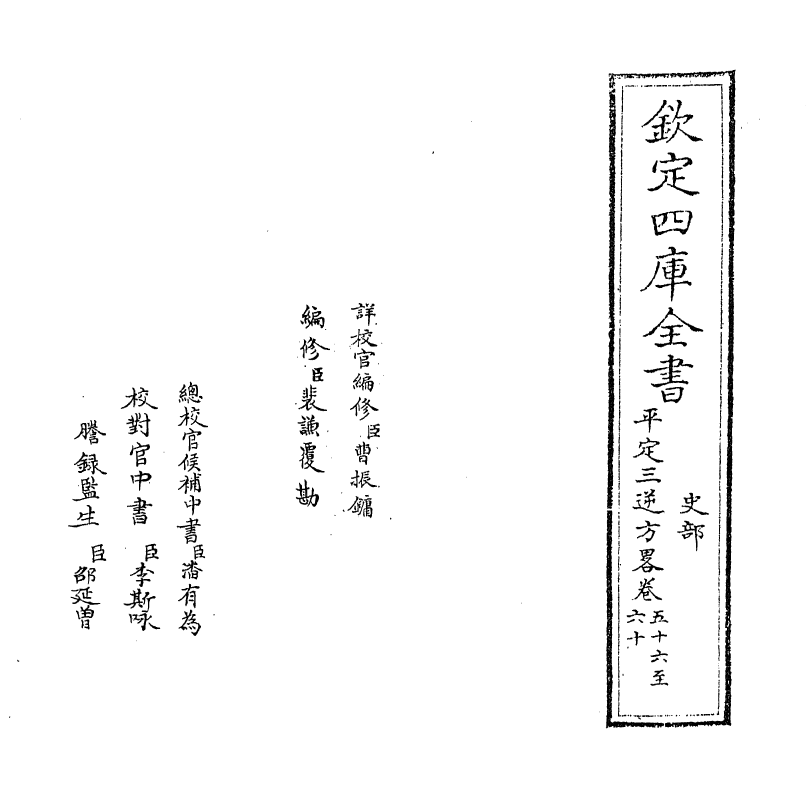 欽定四庫全書
史部
平定三逆方畧卷五十六至六十
詳校官編修臣曹振鏞
編修臣裴謙覆勘
總校官候補中書臣潘有為
校對官中書臣李斯咏
謄録監生臣邵延曾